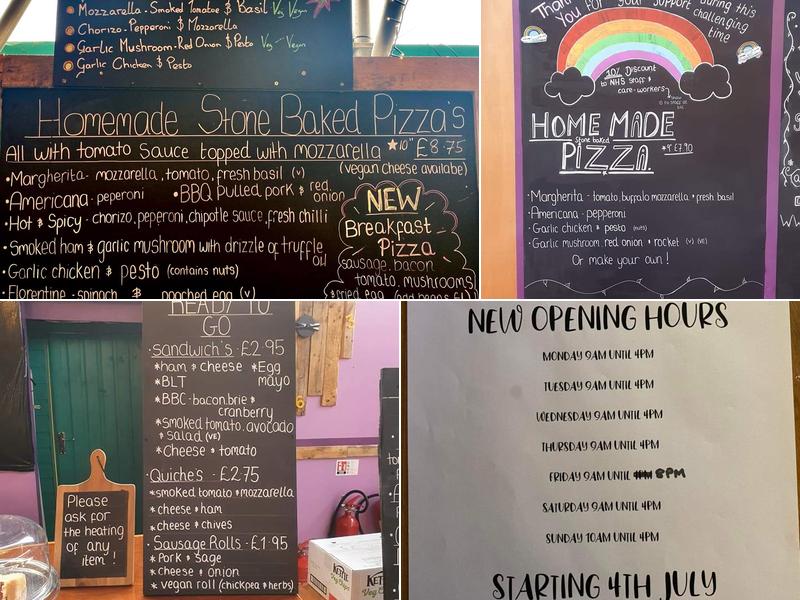 Mozzarella - Smoked Tomatoe & Basil Veg Vegan
Chorizo - Pepperoni & Mozzarella
Garlic Mushroom - Red Onion & Pesto Veg - Vegan
Garlic Chicken & Pesto
Homemade Stone Baked Pizza's
All with tomato sauce topped with mozzarella *10" £8.75
(vegan cheese availabe)
•Margherita - mozzarella, tomato, fresh basil (v)
•Americana - peperoni •BBQ pulled pork & red onion
•Hot & Spicy - chorizo, peperoni, chipotle sauce, fresh chilli
•Smoked ham & garlic mushroom with drizzle of truffle oil
•Garlic chicken & pesto (contains nuts)
•Florentine - spinach & poached egg (v)
NEW
Breakfast
Pizza
sausage, bacon
tomato, mushrooms
& fried egg (add beans
Thank during this
You for your support challenging
time
10% Discount
to NHS staff &
care-workers
HOME MADE
Stone baked
PIZZA
*9" £7.90
•Margherita - tomato, buffalo mozzarella & fresh basil
•Americana - pepperoni
•Garlic chicken & pesto (nuts)
•Garlic mushroom, red onion & rocket (v) (VE)
Or make your own!
READY TO
GO
•Sandwich's - £2.95
*ham & cheese *Egg
*BLT mayo
*BBC - bacon, brie &
cranberry
*smoked tomato, avocado
& salad (VE)
*Cheese & tomato
•Quiche's - £2.75
*smoked tomato & mozzarella
*cheese & ham
*cheese & chives
•Sausage Rolls - £1.95
*Pork & Sage
*cheese & onion
*vegan roll (chickpea & herbs)
Please
ask for
the heating
of any
item!
KETTLE
Veg Chips
NEW OPENING HOURS
MONDAY 9AM UNTIL 4PM
TUESDAY 9AM UNTIL 4PM
WEDNESDAY 9AM UNTIL 4PM
THURSDAY 9AM UNTIL 4PM
FRIDAY 9AM UNTIL 8PM
SATURDAY 9AM UNTIL 4PM
SUNDAY 10AM UNTIL 4PM
STARTING 4TH JULY